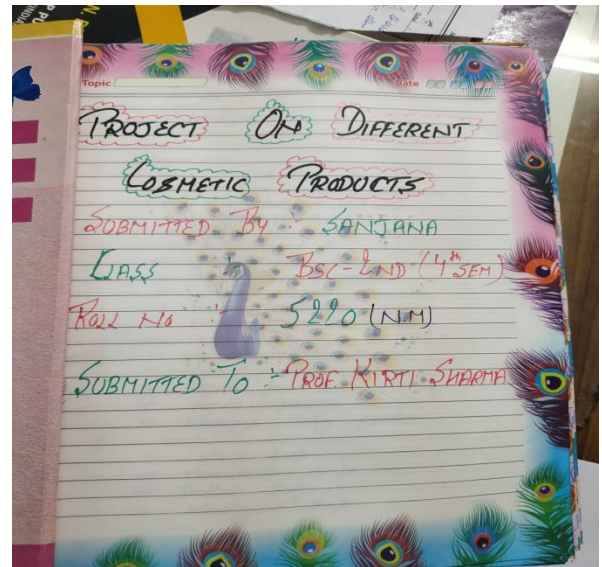 Topic
Date
PROJECT ON DIFFERENT
COSMETIC PRODUCTS
SUBMITTED BY :- SANJANA
CLASS :- BSC-2ND (4th SEM)
ROLL NO :- 5220 (N.M)
SUBMITTED TO :- PROF. KIRTI SHARMA